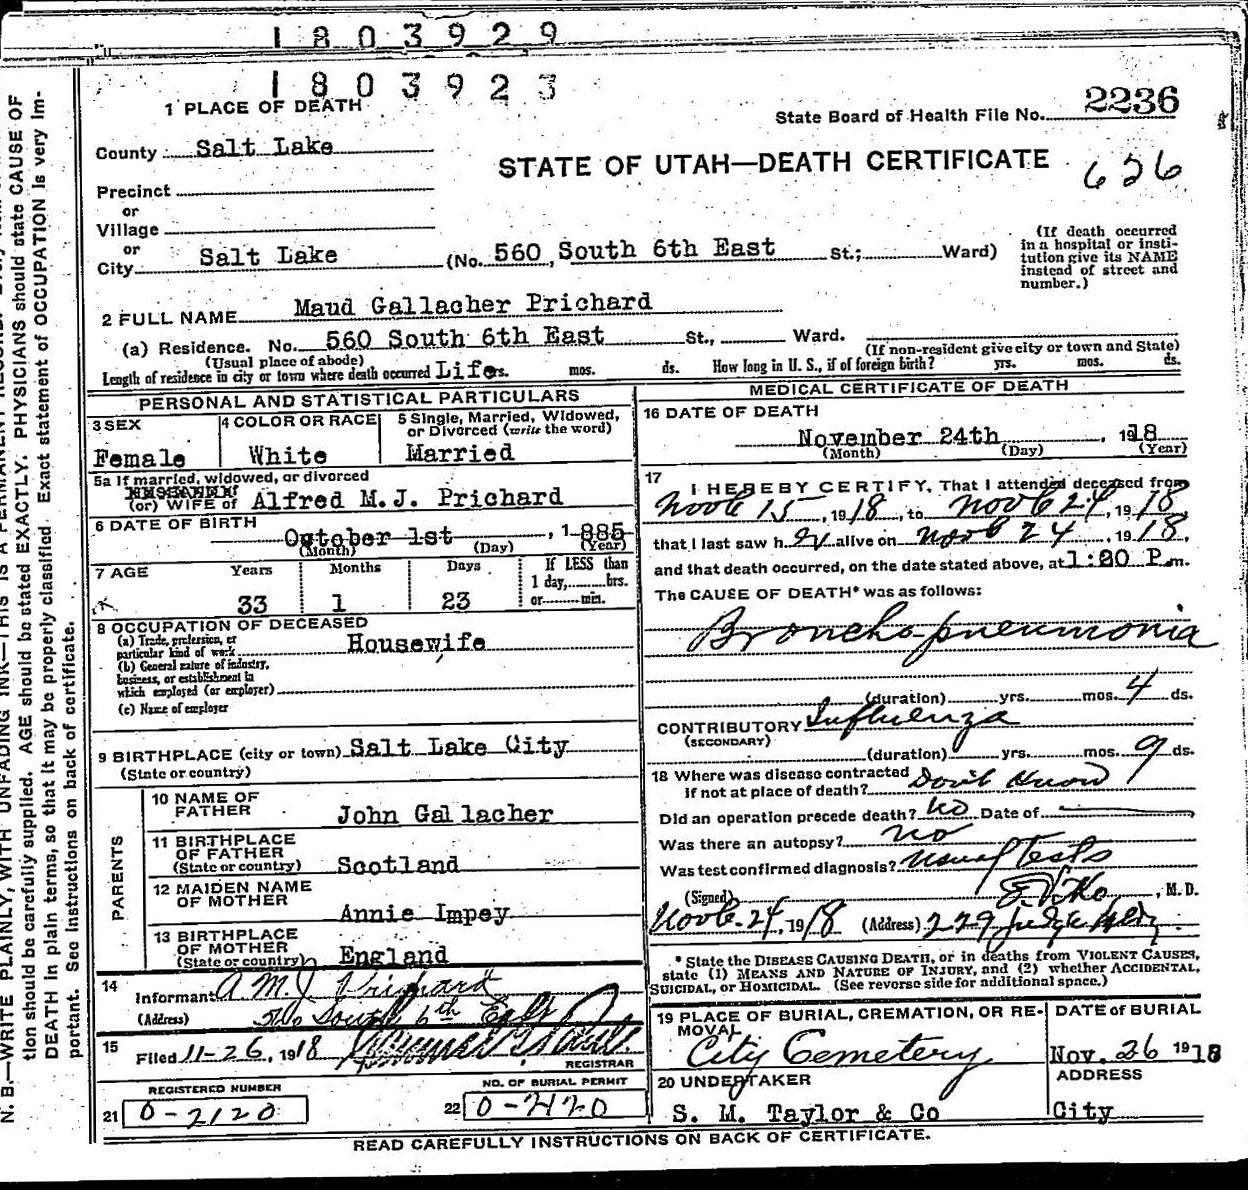 1803929
1803923
1 PLACE OF DEATH
State Board of Health File No. 2236
County Salt Lake
STATE OF UTAH—DEATH CERTIFICATE
626
Precinct
or
Village
or
City Salt Lake (No. 560, South 6th East St.; Ward)
(If death occurred in a hospital or insti-
tution give its NAME instead of street and number.)
2 FULL NAME Maud Gallacher Prichard
(a) Residence. No. 560 South 6th East St., Ward.
(Usual place of abode) (If non-resident give city or town and State)
Length of residence in city or town where death occurred Life rs. mos. ds. How long in U. S., if of foreign birth? yrs. mos. ds.
PERSONAL AND STATISTICAL PARTICULARS
3 SEX
Female
4 COLOR OR RACE
White
5 Single, Married, Widowed,
or Divorced (write the word)
Married
5a If married, widowed, or divorced
(or) WIFE of Alfred M.J. Prichard
6 DATE OF BIRTH
October 1st, 1885
(Month) (Day) (Year)
7 AGE Years Months Days
33 1 23
If LESS than
1 day, hrs.
or min.
8 OCCUPATION OF DECEASED
(a) Trade, profession, or
particular kind of work Housewife
(b) General nature of industry,
business, or establishment in
which employed (or employer)
(c) Name of employer
9 BIRTHPLACE (city or town) Salt Lake City
(State or country)
PARENTS
10 NAME OF
FATHER John Gallacher
11 BIRTHPLACE
OF FATHER
(State or country) Scotland
12 MAIDEN NAME
OF MOTHER Annie Impey
13 BIRTHPLACE
OF MOTHER
(State or country) England
14 Informant A. M. J. Prichard
(Address) 560 South 6th East
15 Filed 11-26, 1918
REGISTRAR
REGISTERED NUMBER
21 0-2120
NO. OF BURIAL PERMIT
22 0-2120
MEDICAL CERTIFICATE OF DEATH
16 DATE OF DEATH
November 24th, 1918
(Month) (Day) (Year)
17 I HEREBY CERTIFY, That I attended deceased from
Novb 15, 1918, to Novb 24, 1918,
that I last saw h er alive on Novb 24 1918,
and that death occurred, on the date stated above, at 1:30 P.m.
The CAUSE OF DEATH* was as follows:
Broncho-pneumonia
(duration) yrs. mos. 4 ds.
CONTRIBUTORY Influenza
(SECONDARY)
(duration) yrs. mos. 9 ds.
18 Where was disease contracted
if not at place of death? Don't Know
Did an operation precede death? No Date of
Was there an autopsy? no
Was test confirmed diagnosis? Usual Tests
(Signed) , M. D.
Novb. 24, 1918 (Address) 229 Judge Bldg.
* State the DISEASE CAUSING DEATH, or in deaths from VIOLENT CAUSES,
state (1) MEANS AND NATURE OF INJURY, and (2) whether ACCIDENTAL,
SUICIDAL, or HOMICIDAL. (See reverse side for additional space.)
19 PLACE OF BURIAL, CREMATION, OR RE-
MOVAL
City Cemetery
DATE of BURIAL
Nov. 26 1918
20 UNDERTAKER
S. M. Taylor & Co
ADDRESS
City
READ CAREFULLY INSTRUCTIONS ON BACK OF CERTIFICATE.
N. B.—WRITE PLAINLY, WITH UNFADING INK—THIS IS A PERMANENT RECORD.
tion should be carefully supplied. AGE should be stated EXACTLY. PHYSICIANS should state CAUSE OF
DEATH in plain terms, so that it may be properly classified. Exact statement of OCCUPATION is very im-
portant. See instructions on back of certificate.